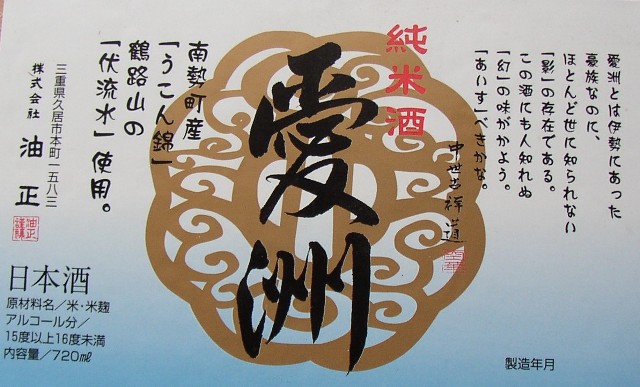 愛洲とは伊勢にあった
豪族なのに、
ほとんど世に知られない
「影」の存在である。
この酒にも人知れぬ
「幻」の味がかよう。
「あいす」べきかな。
純米酒
愛洲
南勢町産
「うこん錦」
鶴路山の
「伏流水」使用。
三重県久居市本町一五八三
株式会社 油正
油正
謹醸
日本酒
原材料名／米・米麹
アルコール分／
15度以上16度未満
内容量／720㎖
製造年月